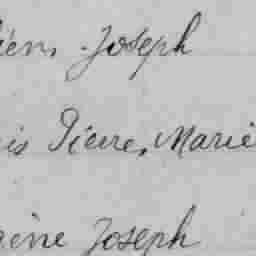 ien, Joseph
is Pierre, Marie
eine Joseph